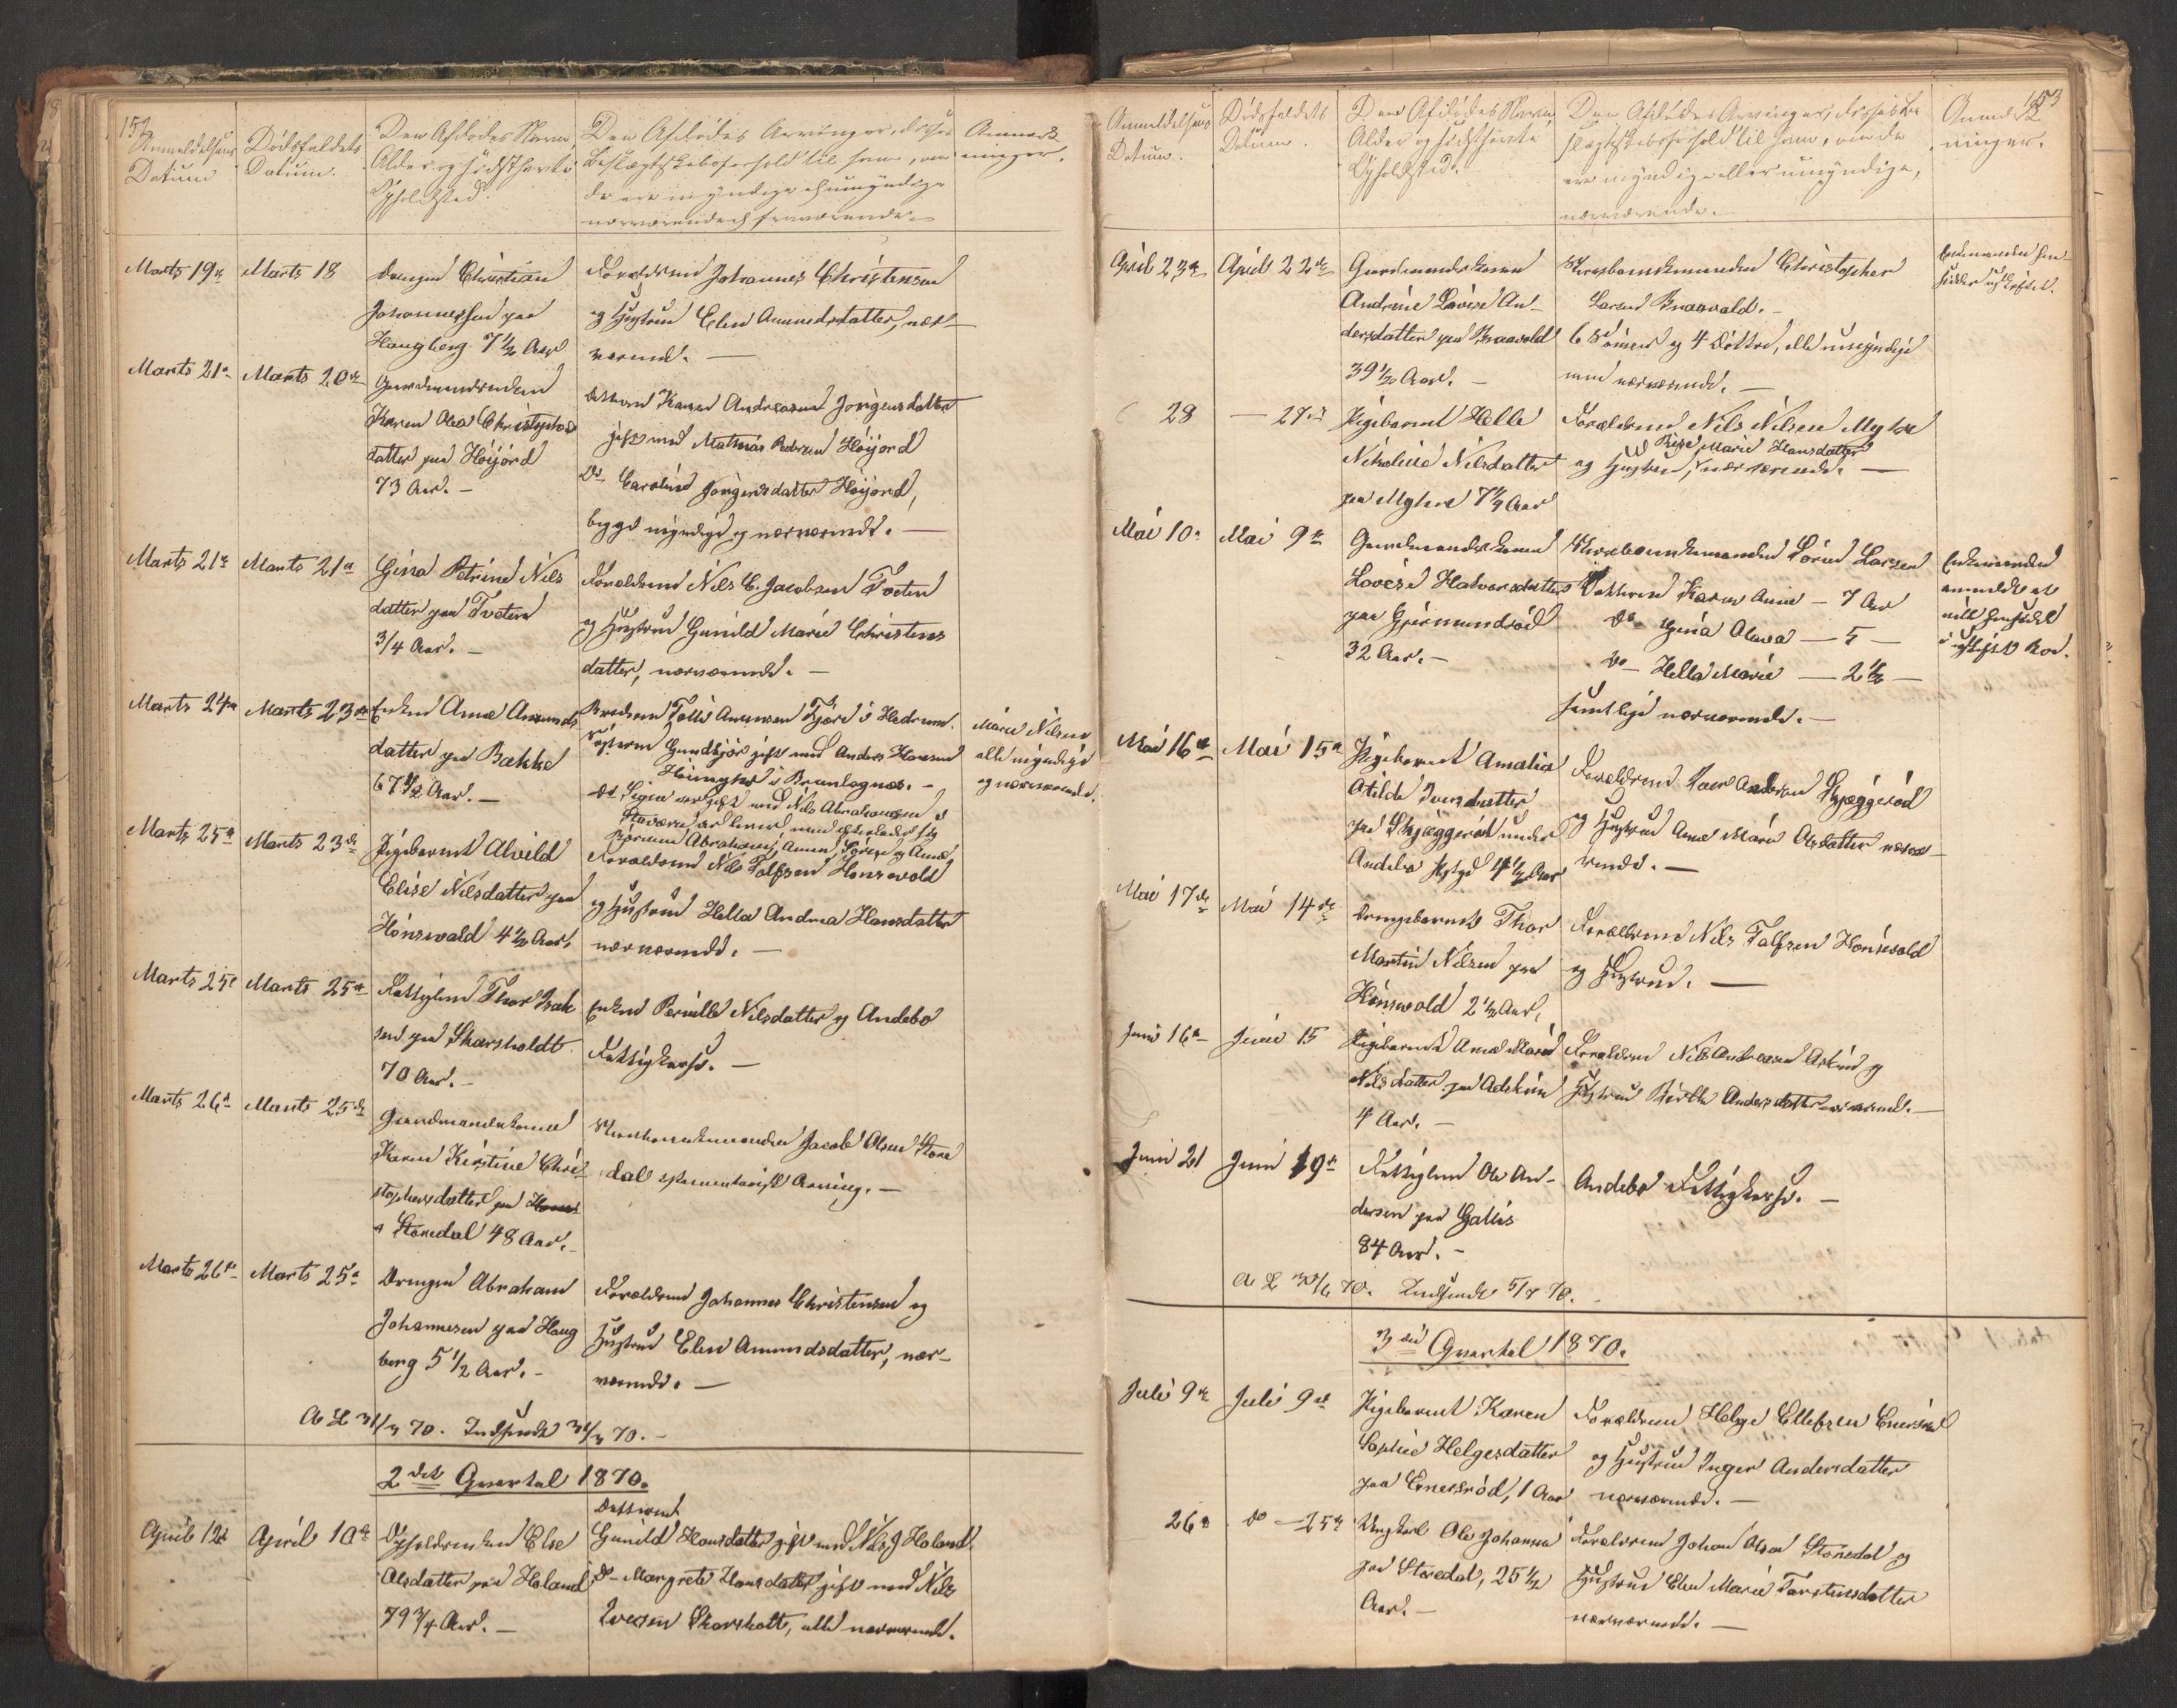 152
Anmeldelsens
Datum
Dødsfaldets
Datum.
Den Afdødes Navn,
Alder og sidst havte
Opholdsted.
Den Afdødes Arvinger, disses
Beslægtskabsforhold til ham, om
de ere myndige eller umyndige
nærværende eller fraværende.
Anmærk
ninger.
Marts 19de
Marts 18
Drengen Christian
Johannessen paa
Haugberg 7 1/2 Aar
Forældrene Johannes Christensen
og Hustru Elen Amundsdatter, nær-
værende. —
Marts 21de
Marts 20de
Gaardmandsenken
Karen Olea Christophers
datter paa Høijord
73 Aar. —
Datteren Karen Andreasen Jørgensdatter
gift med Mathias Pedersen Høijord
Do Caroline Jørgensdatter Høijord,
begge myndige og nærværende. —
Marts 21de
Marts 21de
Gina Petrine Nils
datter paa Tveten
3/4 Aar. —
Forældrene Nils C. Jacobsen Tveten
og Hustru Gunild Marie Christens
datter, nærværende. —
Marts 24de
Marts 23de
Enken Anne Amunds
datter paa Bakke
67 1/2 Aar. —
Broderen Tollef Amundsen Fjære i Hedrum.
Søsteren Gundbjør gift med Anders Hansen
i Brunlagnæs. —
Do Signe var gift med Nils Abrahamsen
Børnene Abraham, Anne, Søren og Anne
Marie Nilsen
alle myndige
og nærværende.
Marts 25de
Marts 23de
Pigebarnet Alvild
Elise Nilsdatter paa
Hønsvald 4 1/2 Aar.
Forældrene Nils Tolfsen Hønsvold
og Hustrue Hella Andrea Hansdatter
nærværende. —
Marts 25de
Marts 25de
Fattiglem Thor Isak
sen paa Skarsholdt
70 Aar. —
Enken Pernille Nilsdatter og Andebo
Fattigkasse. —
Marts 26de
Marts 25de
Gaardmandskone
Karen Kirstine Chri
stophersdatter paa
Storedal 48 Aar. —
Jacob Olsen Store
dal testamentarisk Arving. —
Marts 26de
Marts 25de
Drengen Abraham
Johannesen paa Haug
berg 5 1/2 Aar. —
Forældrene Johannes Christensen og
Hustrue Elen Amundsdatter, nær-
værende. —
A L 31/3 70. Indsendt 31/3 70. —
2det Qvartal 1870.
April 12te
April 10de
Else
Olsdatter paa Holand
79 3/4 Aar. —
Datteren
Gunild Hansdatter gift med Nils J Holand
Do Margrete Hansdatter gift med Nils
Iversen Skarsholt, alle nærværende.
153
Anmeldelsens
Datum.
Dødsfaldets
Datum.
Den Afdødes Navn,
Alder og sidst havte
Opholdsted.
Den Afdødes Arvinger, disses be
slægtskabsforhold til ham, om de
ere myndige eller umyndige,
nærværende. —
Anmærk
ninger.
April 23de
April 22de
Gaardmandskonen
Andrine Lovise An-
dersdatter paa Kraavold
39 1/2 Aar. —
Christopher
Larsen Kraavald. —
6 Sønner og 4 Døttre, alle umyndige
men nærværende. —
Enkemanden hen
sidder uskiftet.
28
— 27de
Pigebarnet Helle
Nikoline Nilsdatter
paa Myhre 7 1/4 Aar
Forældrene Nils Nilsen Myhre
Marie Hansdatter
og Hustrue, nærværende. —
Mai 10de
Mai 9de
Gaardmandskonen
Lovise Halvorsdatter
paa Gjermundrød
32 Aar. —
Søren Larsen
Datteren Karen Anne — 7 Aar
Do Gina Olava — 5 —
Do Hella Marie — 2 1/2 —
samtlige nærværende. —
Enkemanden
anmeldte at
ville hensidde
i uskiftet Bo.
Mai 16de
Mai 15de
Pigebarnet Amalia
Otilde Iversdatter
paa Skjæggerød under
Andebo Præstegd 4 1/2 Aar
Forældrene Iver Andersen Skjæggerød
og Hustrue Anne Marie Olsdatter nærvæ-
rende. —
Mai 17de
Mai 14de
Drengebarnet Thor
Martin Nilsen paa
Hønsvold 2 1/2 Aar.
Forældrene Nils Tolfsen Hønsvold
og Hustrue. —
Juni 16de
Juni 15
Pigebarnet Anne Marie
Nilsdatter paa Askim
4 Aar. —
Forældrene Nils Andreasen Askim og
Hustrue Andersdatter nærværende. —
Juni 21
Juni 19de
Fattiglem Ole An-
dersen paa Gallis
84 Aar. —
Andebo Fattigkasse. —
A L 30/6 70. Indsendt 5/7 70. —
3die Qvartal 1870.
Juli 9de
Juli 9de
Pigebarnet Karen
Sophie Helgesdatter
paa Enersrød, 1 Aar
Forældrene Helge Ellefsen Enersrød
og Hustrue Inger Andersdatter
nærværende. —
26de
do — 25de
Ungkarl Ole Johannsen
paa Storedal, 25 1/2
Aar. —
Forældrene Johan Olsen Storedal og
Hustrue Elen Marie Torstensdatter
nærværende. —